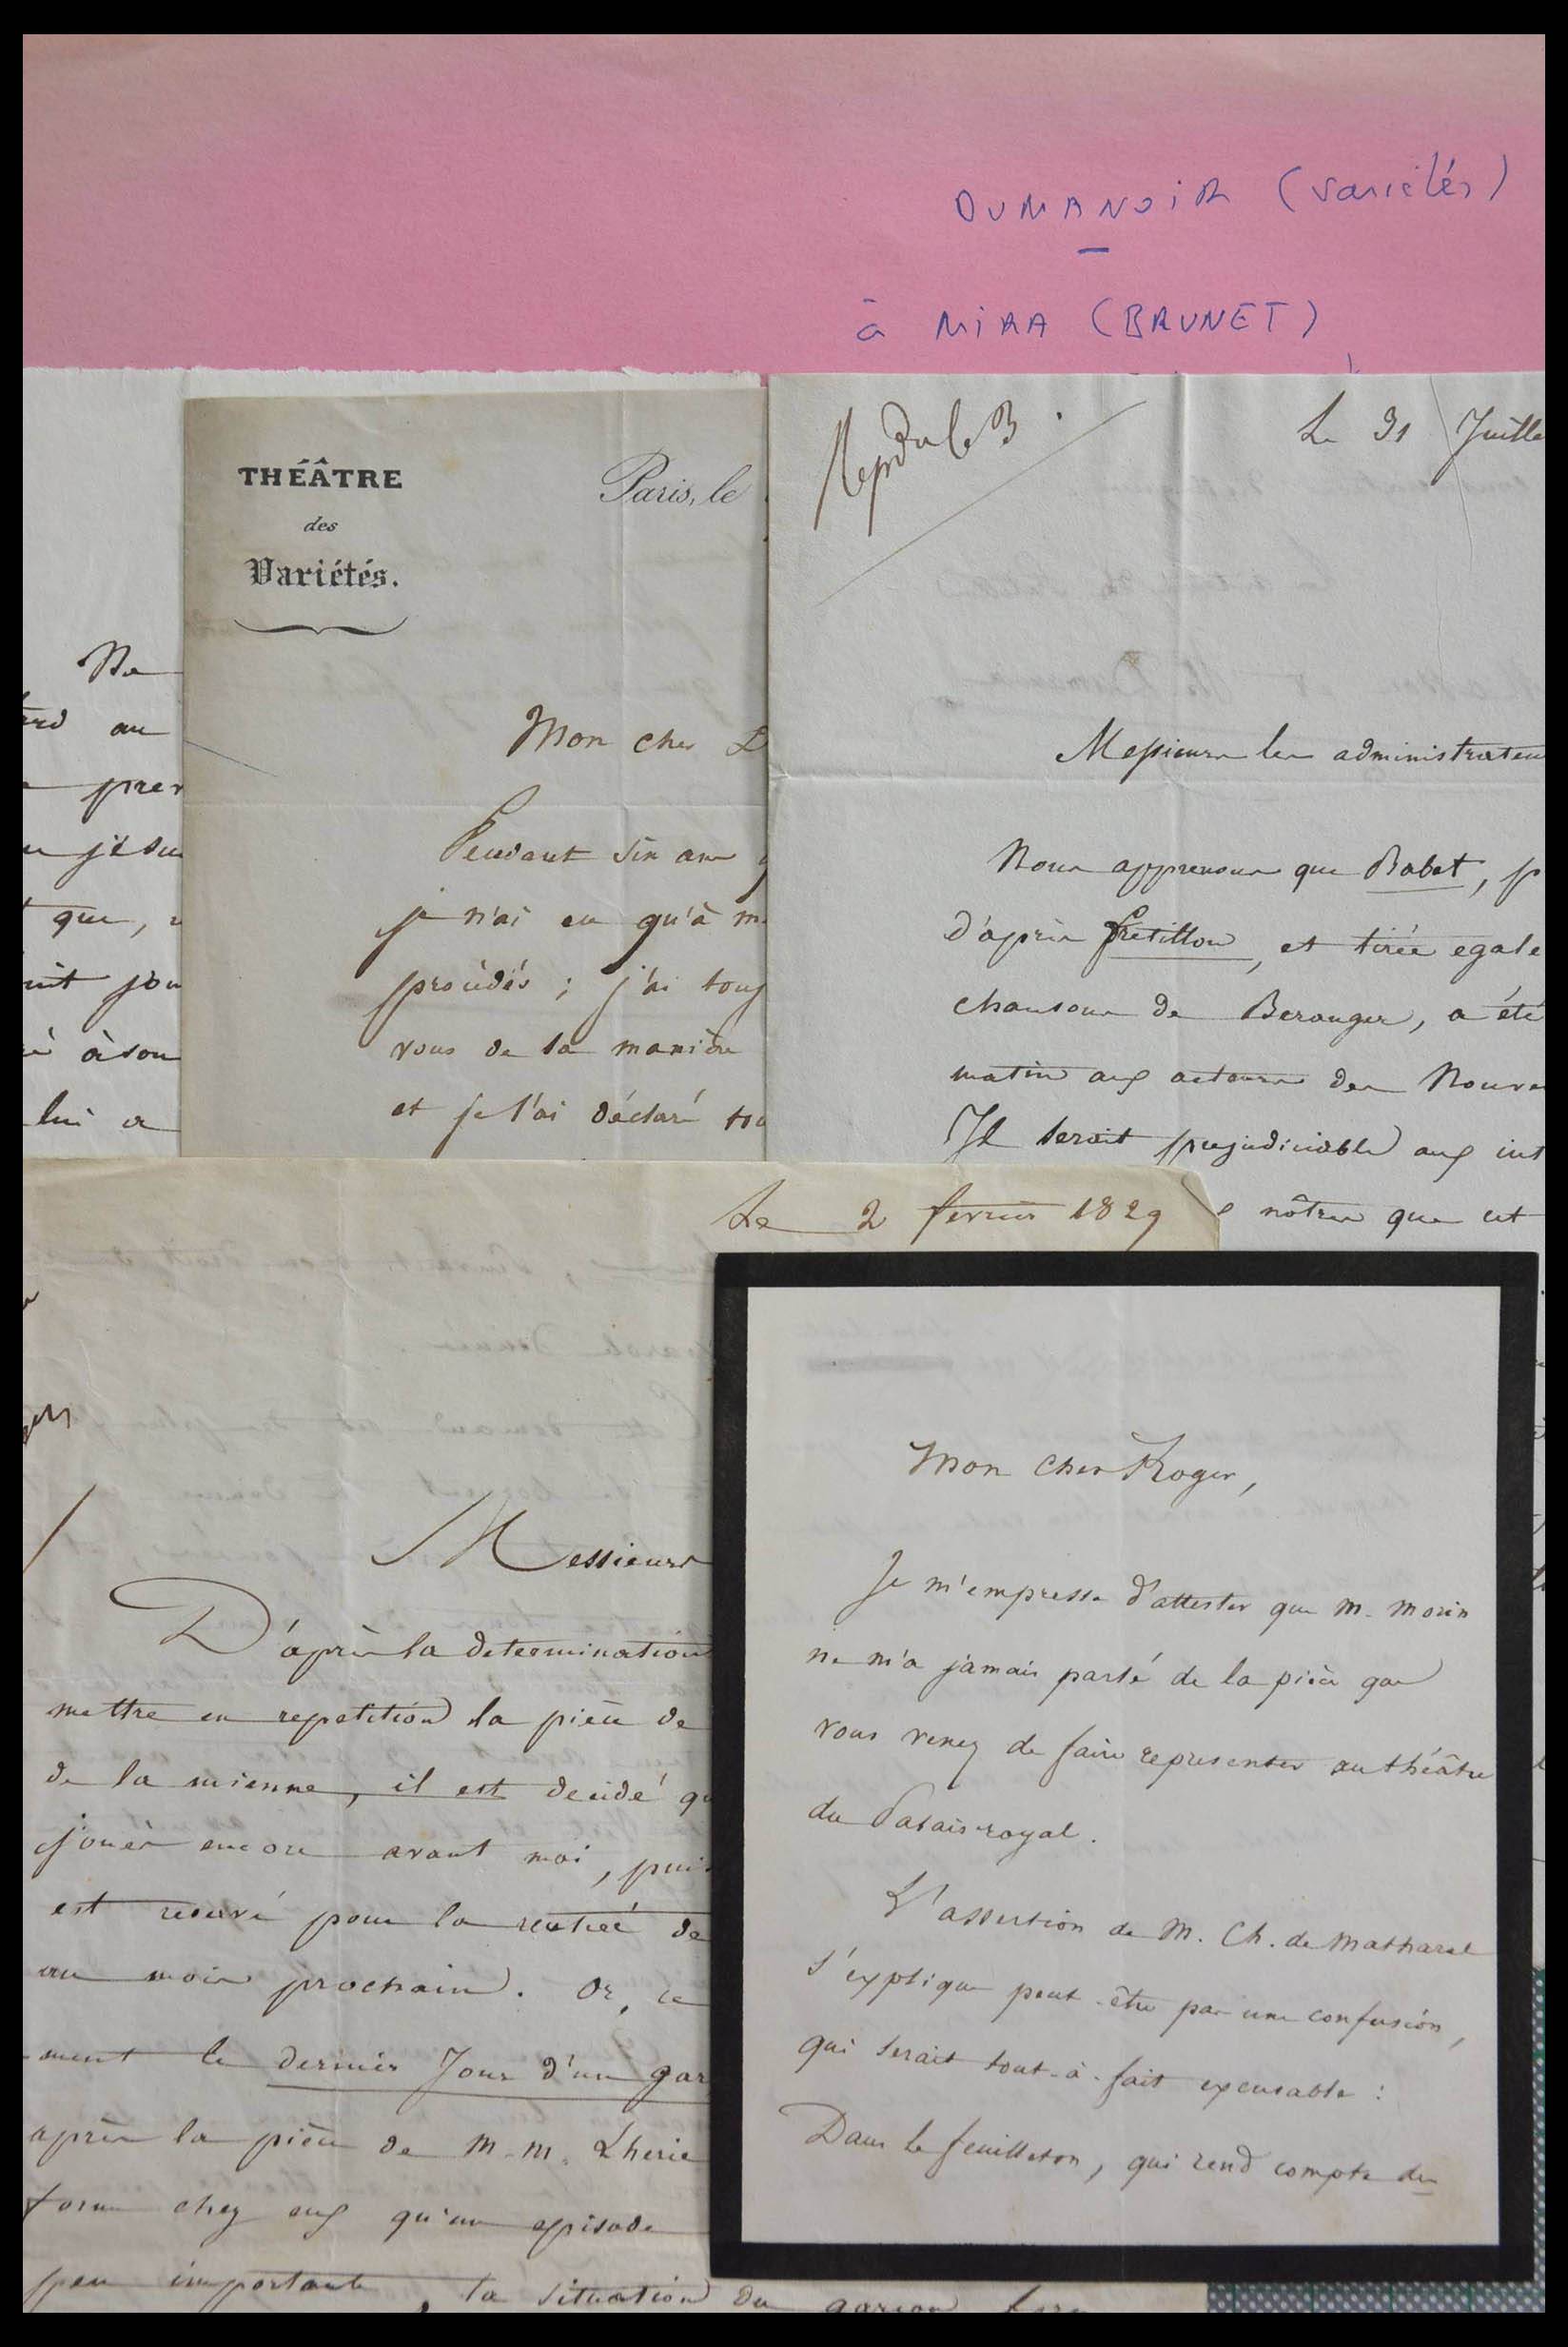 DUMANOIR (Variétés)
à MIRA (BRUNET)
THÉÂTRE
des
Variétés.
Paris, le
Mon cher D
Pendant six ans
je n'ai eu qu'à m
procédés ; j'ai touj
vous de la manière
et je l'ai déclaré tou
Ne
ard au
pren
que,
à son
lui a
Le 31 Juille
Messieurs les administrateu
Nous apprenons que Babet, p
d'après fretillon, et tirée egale
chansons de Beranger, a été
matin aux acteurs des Nouve
Il serait prejudiciable aux int
nôtres que cet
Le 2 fevrier 1829
Messieurs
D'après la determination
mettre en repetition la pièce de
de la mienne, il est decidé qu
jouer encore avant moi, puis
est reservé pour la rentrée de
au mois prochain. Or, ce
-ment le dernier Jour d'un gar
après la pièce de M.M. Lherie
forme chez eux qu'un episode
peu importante, la situation du garçon
Mon cher Roger,
Je m'empresse d'attester que M. Morin
ne m'a jamais parlé de la pièce que
vous venez de faire representer au théâtre
du Palais-royal.
L'assertion de M. Ch. de Matharel
s'explique peut-être par une confusion,
qui serait tout-à-fait excusable :
Dans le feuilleton, qui rend compte des